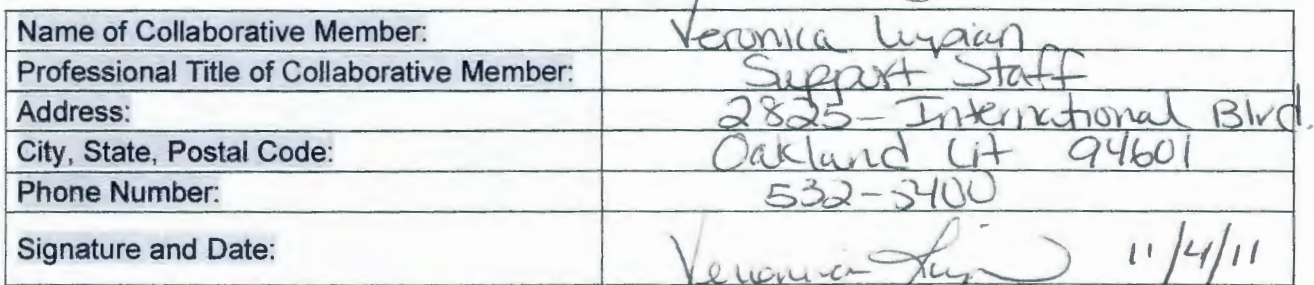 Name of Collaborative Member: Veronica
Professional Title of Collaborative Member: Support Staff
Address: 2825- International Blvd.
City, State, Postal Code: Oakland 94601
Phone Number: 532-5400
Signature and Date: Veronica 11/4/11